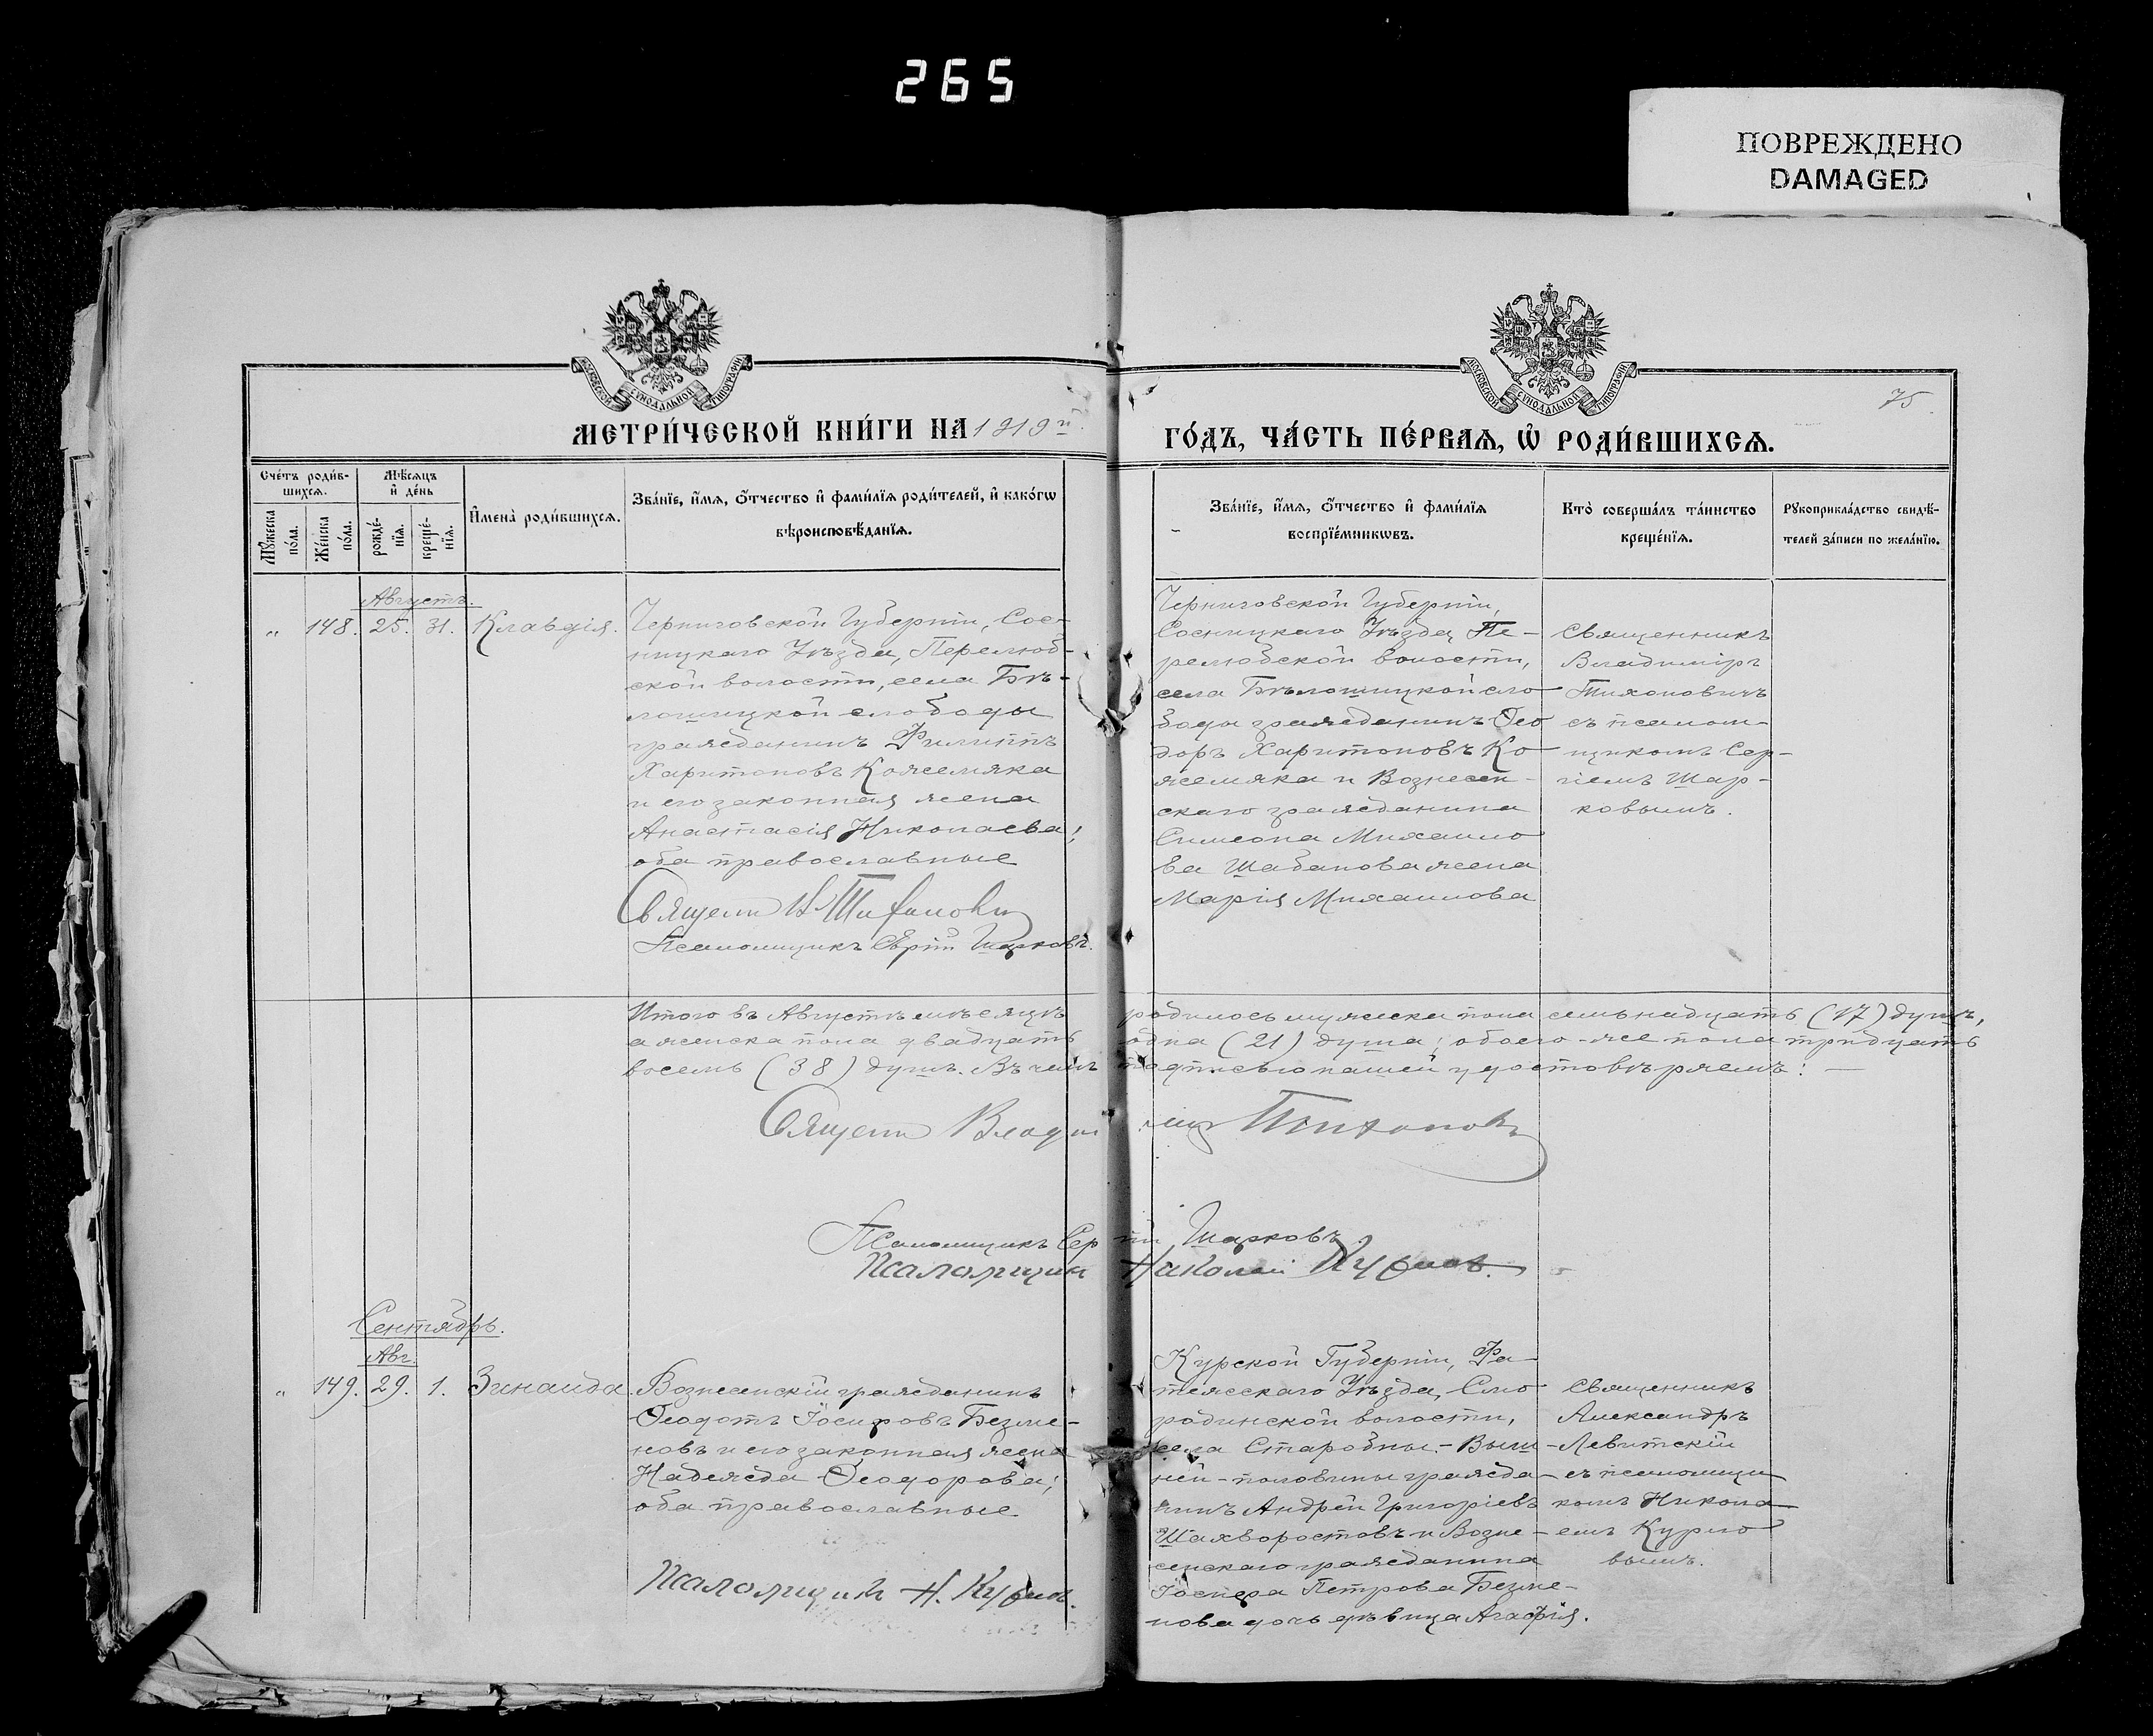 265
ПОВРЕЖДЕНО
DAMAGED
МОСКОВСКОЙ СУНОДАЛЬНОЙ ТИПОГРАФІИ
МОСКОВСКОЙ СУНОДАЛЬНОЙ ТИПОГРАФІИ
75
МЕТРИ́ЧЕСКОЙ КНИ́ГИ НА 1919й
ГО́ДЪ, ЧА́СТЬ ПЕ́РВАЯ, Ѡ҆ РОДИ́ВШИХСѦ.
Сче́тъ роди́в-
шихсѧ.
Мѣ́сѧцъ
и҆ де́нь
Мꙋ́жеска
по́ла.
Же́нска
по́ла.
рожде́-
нїѧ.
креще́-
нїѧ.
И҆мена̀ роди́вшихсѧ.
Зва́нїе, и҆́мѧ, ѻ҆́тчество и҆ фами́лїѧ роди́телей, и҆ како́гѡ
вѣроисповѣ́данїѧ.
Зва́нїе, и҆́мѧ, ѻ҆́тчество и҆ фами́лїѧ
воспрїе́мникѡвъ.
Кто̀ соверша́лъ та́инство
креще́нїѧ.
Рꙋкоприкла́дство свидѣ́-
телей за́писи по жела́нїю.
Августъ.
„ 148. 25. 31. Клавдія.
Черниговской Губерніи, Сос-
ницкаго Уѣзда, Перелюб-
ской волости, села Бѣ-
лошицкой слободы
гражданинъ Филиппъ
Харитоновъ Кожемяка
и его законная жена
Анастасія Николаева;
оба православные
Священ В Тихонович
Псаломщикъ Сергій Шарковъ.
Черниговской Губерніи,
Сосницкаго Уѣзда, Пе-
релюбской волости,
села Бѣлошицкой сло-
боды гражданинъ Ѳео
доръ Харитоновъ Ко-
жемяка и Вознесен-
скаго гражданина
Симеона Михаило
ва Шабанова жена
Марія Михаилова
Священникъ
Владиміръ
Тихоновичъ
съ псалом-
щикомъ Сер-
гіемъ Шар-
ковымъ.
Итого въ Августѣ мѣсяцѣ родилось мужеска пола семьнадцать (17) душъ,
а женска пола двадцать одна (21) душа; обоего-же пола тридцать
восемь (38) душъ. Въ чемъ подписью нашей удостовѣряемъ: —
Священ Владимир Тихонович
Псаломщикъ Сергій Шарковъ
Псаломщик Николай Курлов.
Сентябрь.
Авг.
„ 149. 29. 1. Зинаида.
Вознесенскій гражданинъ
Ѳеодотъ Іосифовъ Безме-
новъ и его законная жена
Надежда Ѳеодорова;
оба православные
Псаломщик Н. Курлов.
Курской Губерніи, Фа-
тежскаго Уѣзда, Смо-
родинской волости,
села Стародны-Выш-
ней-половины гражда-
нинъ Андрей Григоріевъ
Шахворостовъ и Возне-
сенскаго гражданина
Іосифа Петрова Безме-
нова дочь дѣвица Агафія.
Священникъ
Александръ
Левитскій
съ псаломщи
комъ Никола
емъ Курло
вымъ.